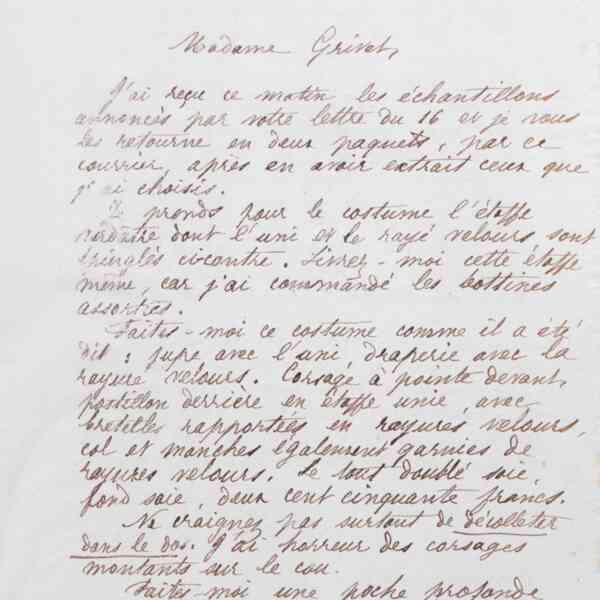 Madame Grivet,
J'ai reçu ce matin les échantillons
annoncés par votre lettre du 16 et je vous
les retourne en deux paquets, par ce
courrier, après en avoir extrait ceux que
j'ai choisis.
Je prends pour le costume l'étoffe
verdâtre dont l'uni et le rayé velours sont
épinglés ci-contre. Livrez-moi cette étoffe
même, car j'ai commandé les bottines
assorties.
Faites-moi ce costume comme il a été
dit : jupe avec l'uni, draperie avec la
rayure velours. Corsage à pointe devant,
postillon derrière en étoffe unie, avec
bretelles rapportées en rayures velours,
col et manches également garnies de
rayures velours. Le tout doublé soie,
fond soie, deux cent cinquante francs.
Ne craignez pas surtout de décolleter
dans le dos. J'ai horreur des corsages
montants sur le cou.
Faites-moi une poche profonde